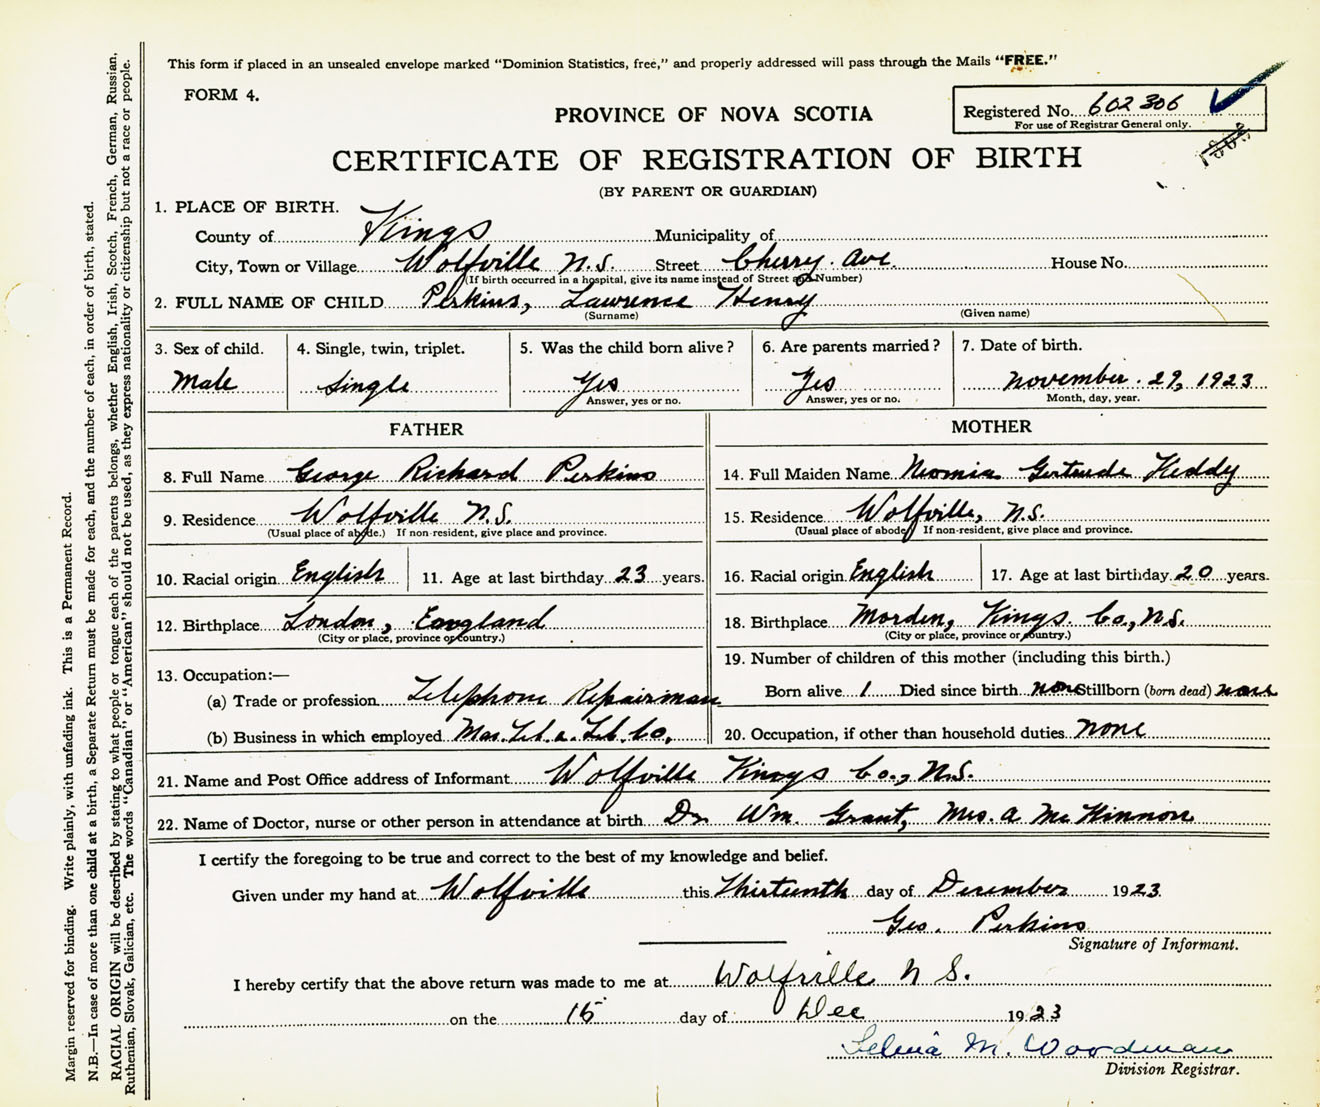 This form if placed in an unsealed envelope marked "Dominion Statistics, free," and properly addressed will pass through the Mails "FREE."
FORM 4.
PROVINCE OF NOVA SCOTIA
Registered No. 602306
For use of Registrar General only.
CERTIFICATE OF REGISTRATION OF BIRTH
(BY PARENT OR GUARDIAN)
1. PLACE OF BIRTH.
County of Kings Municipality of
City, Town or Village Wolfville N.S. Street Cherry. Ave. House No.
(If birth occurred in a hospital, give its name instead of Street and Number)
2. FULL NAME OF CHILD Perkins, Lawrence Henry
(Surname) (Given name)
3. Sex of child. 4. Single, twin, triplet. 5. Was the child born alive? 6. Are parents married? 7. Date of birth.
Male Single Yes Yes November. 29, 1923
Answer, yes or no. Answer, yes or no. Month, day, year.
FATHER MOTHER
8. Full Name George Richard Perkins 14. Full Maiden Name Neomia Gertrude Keddy
9. Residence Wolfville N.S. 15. Residence Wolfville, N.S.
(Usual place of abode.) If non-resident, give place and province. (Usual place of abode) If non-resident, give place and province.
10. Racial origin English 11. Age at last birthday 23 years. 16. Racial origin English 17. Age at last birthday 20 years.
12. Birthplace London, England 18. Birthplace Morden, Kings. Co., N.S.
(City or place, province or country.) (City or place, province or country.)
13. Occupation:— 19. Number of children of this mother (including this birth.)
(a) Trade or profession Telephone Repairman Born alive 1 Died since birth none Stillborn (born dead) none
(b) Business in which employed Mar. Tel. a. Tel. Co, 20. Occupation, if other than household duties none
21. Name and Post Office address of Informant Wolfville Kings Co., N.S.
22. Name of Doctor, nurse or other person in attendance at birth Dr. Wm. Grant, Mrs. A McKinnon
I certify the foregoing to be true and correct to the best of my knowledge and belief.
Given under my hand at Wolfville this Thirteenth day of December 1923
Geo. Perkins
Signature of Informant.
I hereby certify that the above return was made to me at Wolfville N S.
on the 15 day of Dec 1923
M. Woodman
Division Registrar.
Margin reserved for binding. Write plainly, with unfading ink. This is a Permanent Record.
N.B.—In case of more than one child at a birth, a Separate Return must be made for each, and the number of each, in order of birth, stated.
RACIAL ORIGIN will be described by stating to what people or tongue each of the parents belongs, whether English, Irish, Scotch, French, German, Russian,
Ruthenian, Slovak, Galician, etc. The words "Canadian" or "American" should not be used, as they express nationality or citizenship but not a race or people.